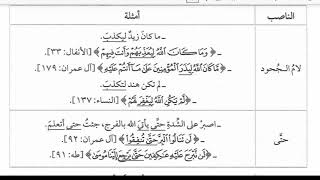 الناصب أمثلة
ـ ما كانَ زيدٌ ليكذبَ.
ـ ﴿وَمَا كَانَ اللَّهُ لِيُعَذِّبَهُمْ وَأَنتَ فِيهِمْ﴾ [الأنفال: ٣٣].
لامُ الـجُحود ـ ﴿مَّا كَانَ اللَّهُ لِيَذَرَ الْمُؤْمِنِينَ عَلَىٰ مَا أَنتُمْ عَلَيْهِ﴾ [آل عمران: ١٧٩].
ـ لم تكن هند لتكذبَ.
ـ ﴿لَمْ يَكُنِ اللَّهُ لِيَغْفِرَ لَهُمْ﴾ [النساء: ١٣٧].
ـ اصبر على الشدّةِ حتى يأتيَ الله بالفرج، جئتُ حتى أتعلمَ.
حتَّى ـ ﴿لَن تَنَالُوا الْبِرَّ حَتَّىٰ تُنفِقُوا﴾ [آل عمران: ٩٢].
ـ ﴿لَن نَّبْرَحَ عَلَيْهِ عَاكِفِينَ حَتَّىٰ يَرْجِعَ إِلَيْنَا مُوسَىٰ﴾ [طه: ٩١].